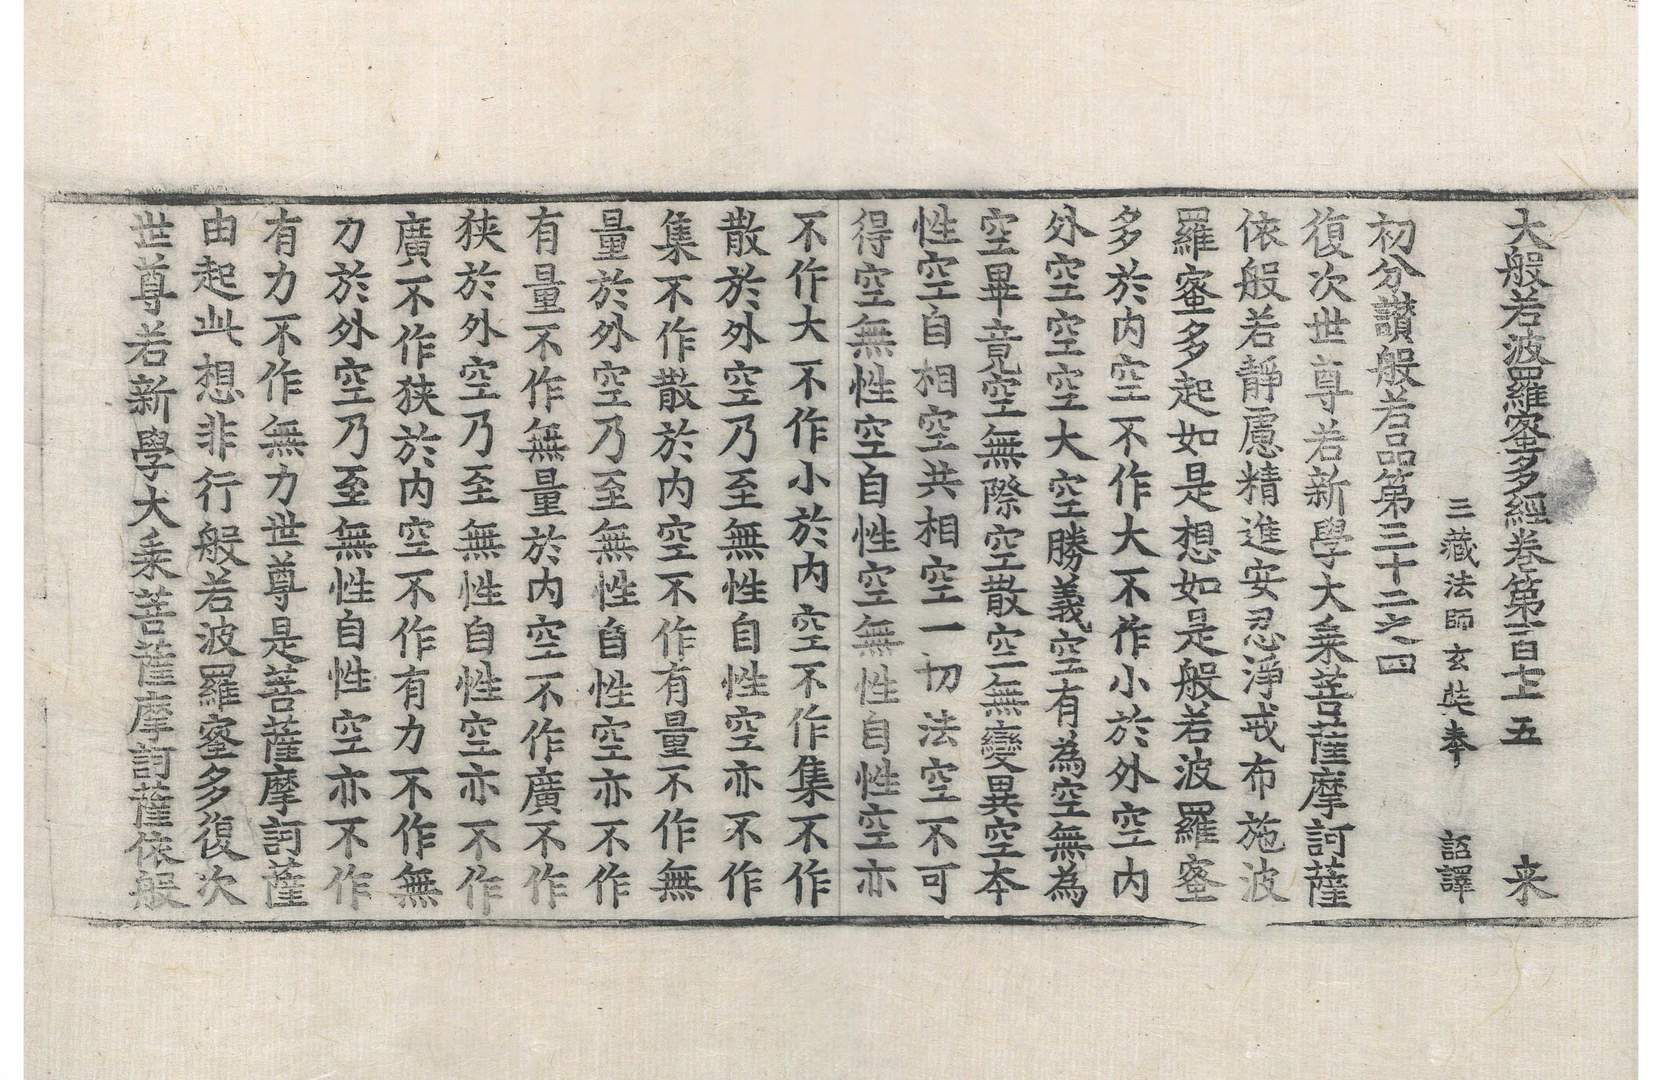 大般若波羅蜜多經卷第一百七十五 来
三藏法師玄奘奉 詔譯
初分讃般若品第三十二之四
復次世尊若新學大乘菩薩摩訶薩
依般若靜慮精進安忍淨戒布施波
羅蜜多起如是想如是般若波羅蜜
多於内空不作大不作小於外空内
外空空空大空勝義空有為空無為
空畢竟空無際空散空無變異空本
性空自相空共相空一切法空不可
得空無性空自性空無性自性空亦
不作大不作小於内空不作集不作
散於外空乃至無性自性空亦不作
集不作散於内空不作有量不作無
量於外空乃至無性自性空亦不作
有量不作無量於内空不作廣不作
狹於外空乃至無性自性空亦不作
廣不作狹於内空不作有力不作無
力於外空乃至無性自性空亦不作
有力不作無力世尊是菩薩摩訶薩
由起此想非行般若波羅蜜多復次
世尊若新學大乘菩薩摩訶薩依般